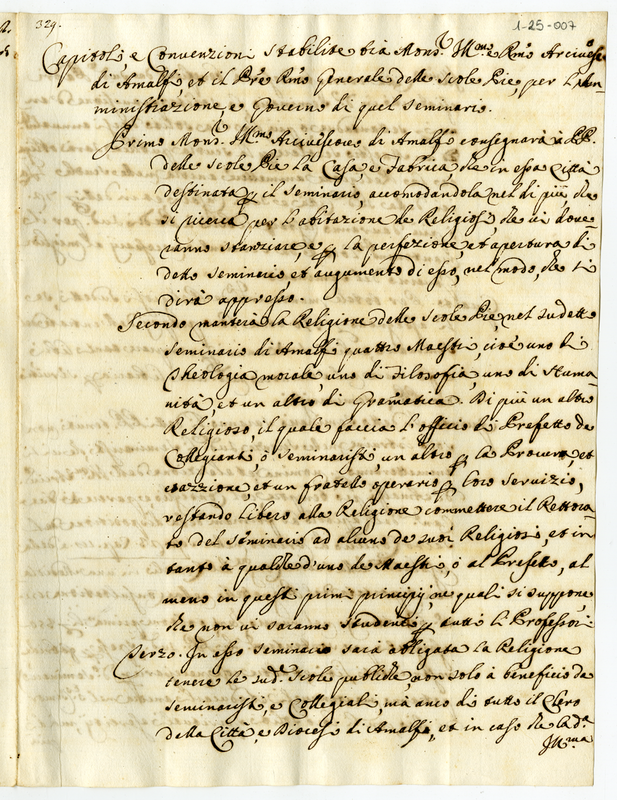 329.
1-25-007
Capitoli e Convenzioni stabilite tra Mons.r Ill.mo e R.mo Arcivesc.o
di Amalfi et il Pre R.mo Generale delle Scole Pie, per l'Am=
ministrazione, e Governo di quel Seminario.
Primo Mons.r Ill.mo Arcivescovo di Amalfi consegnarà à PP.
delle Scole Pie la Casa, e Fabrica che in essa Città
destinata p il seminario, accomodandola nel di più, che
si ricerca per l'abitazione de Religiosi, che ivi dove=
ranno stanziare, e p la perfezzione, et apertura di
detto seminario et augumento di esso, nel modo, che si
dirà appresso.
Secondo manterà la Religione delle Scole Pie, nel sudetto
seminario di Amalfi quattro Maestri, cioè uno di
Theologia morale, uno di Filosofia, uno di Huma=
nità, et un altro di Gramatica. Di più un altro
Religioso, il quale faccia l'officio di Prefetto de
Collegianti, ò seminaristi, un altro p la Procura, et
esazzione, et un fratello operario p loro servizio,
restando libero alla Religione commettere il Rettora=
to del seminario ad alcuno de suoi Religiosi, et in
tanto à qualche d'uno de Maestri, ò al Prefetto, al
meno in questi primi principij, ne quali si suppone
che non vi saranno studenti p tutti li Professori.
Terzo. In esso seminario sarà obligata la Religione
tenere le sud.e Scole publiche, non solo à beneficio de
seminaristi, e Collegiali, mà anco di tutto il Clero
della Città, e Diocesi di Amalfi, et in caso che la d.a
Ill.ma